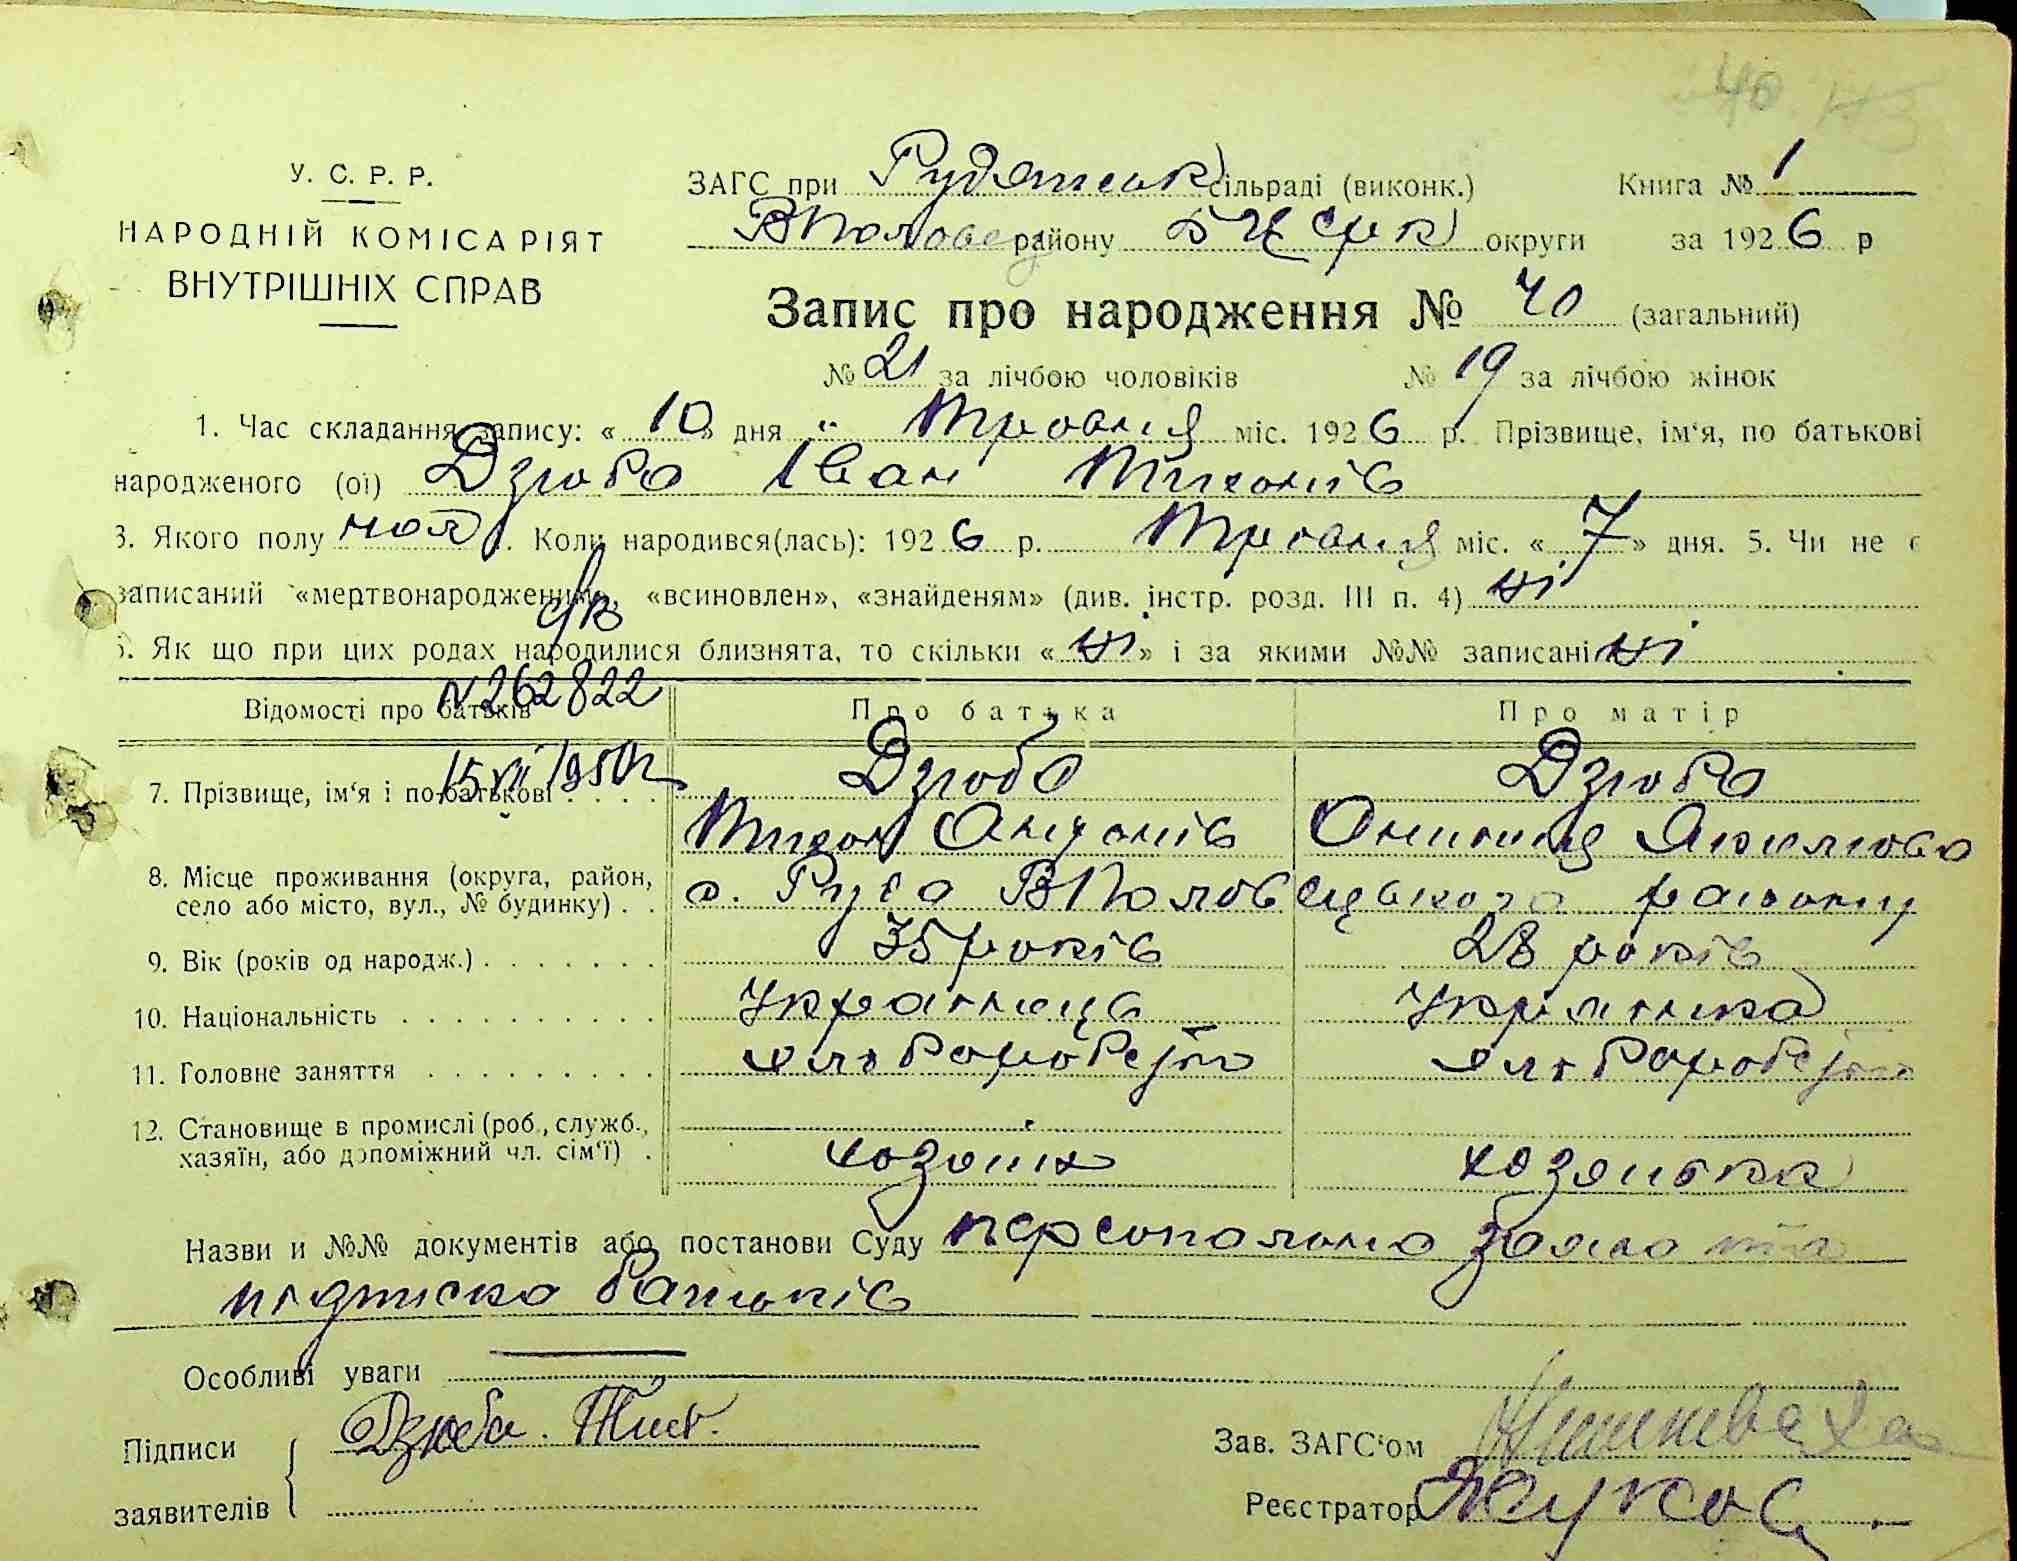 40
У. С. Р. Р.
НАРОДНІЙ КОМІСАРІЯТ
ВНУТРІШНІХ СПРАВ
ЗАГС при Рудянськ сільраді (виконк.) Книга № 1
ВПолове району БЦерк округи за 1926 р
Запис про народження № 40 (загальний)
№ 21 за лічбою чоловіків № 19 за лічбою жінок
1. Час складання запису: « 10 » дня " Травня міс. 1926 р. Прізвище, ім'я, по батькові
народженого (ої) Дзюба Іван Тихонів
3. Якого полу чол. Коли народився(лась): 1926 р. Травня міс. « 7 » дня. 5. Чи не є
записаний «мертвонародженим», «всиновлен», «знайденям» (див. інстр. розд. III п. 4) ні
6. Як що при цих родах народилися близнята, то скільки « ні » і за якими №№ записані ні
№262822
Відомості про батьків Про батька Про матір
15 VII 1950
7. Прізвище, ім'я і по-батькові . . . . Дзюба Дзюба
Тихон Антонів Онисия Якимова
8. Місце проживання (округа, район, село або місто, вул., № будинку) . . с. Руда ВПоловецького району
9. Вік (років од народж.) . . . . . . . 35 років 28 років
10. Національність . . . . . . . . . . Українець Українка
11. Головне заняття . . . . . . . . . хлібороб хлібороб
12. Становище в промислі (роб., служб., хазяїн, або допоміжний чл. сім'ї) . хозяїн хозяйка
Назви и №№ документів або постанови Суду персональна заява та
підписка батьків
Особливі уваги
Підписи Дзюба. Тих.
заявителів
Зав. ЗАГС'ом
Реєстратор Жуков